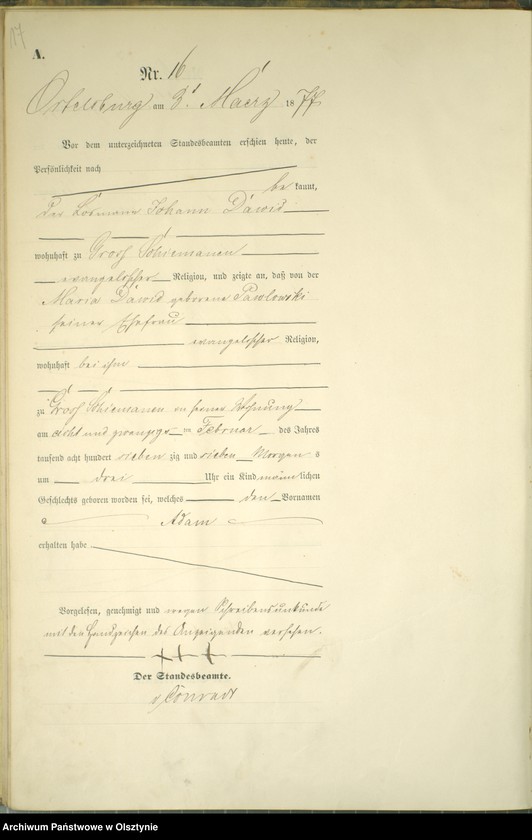 17
A.
Nr. 16
Ortelsburg am 3. Maerz 1877
Vor dem unterzeichneten Standesbeamten erschien heute, der
Persönlichkeit nach
be kannt,
der Losmann Johann Dawid
wohnhaft zu Gross Schiemanen
evangelischer Religion, und zeigte an, daß von der
Maria Dawid geborene Pawlowski
seiner Ehefrau
evangelischer Religion,
wohnhaft bei ihm
zu Gross Schiemanen in seiner Wohnung
am acht und zwanzigs ten Februar des Jahres
tausend acht hundert sieben zig und sieben Morgen s
um drei Uhr ein Kind männ lichen
Geschlechts geboren worden sei, welches den Vornamen
Adam
erhalten habe
Vorgelesen, genehmigt und wegen Schreibensunkunde
mit den Handzeichen des Anzeigenden versehen.
+++
Der Standesbeamte.
v Conradt
Archiwum Państwowe w Olsztynie